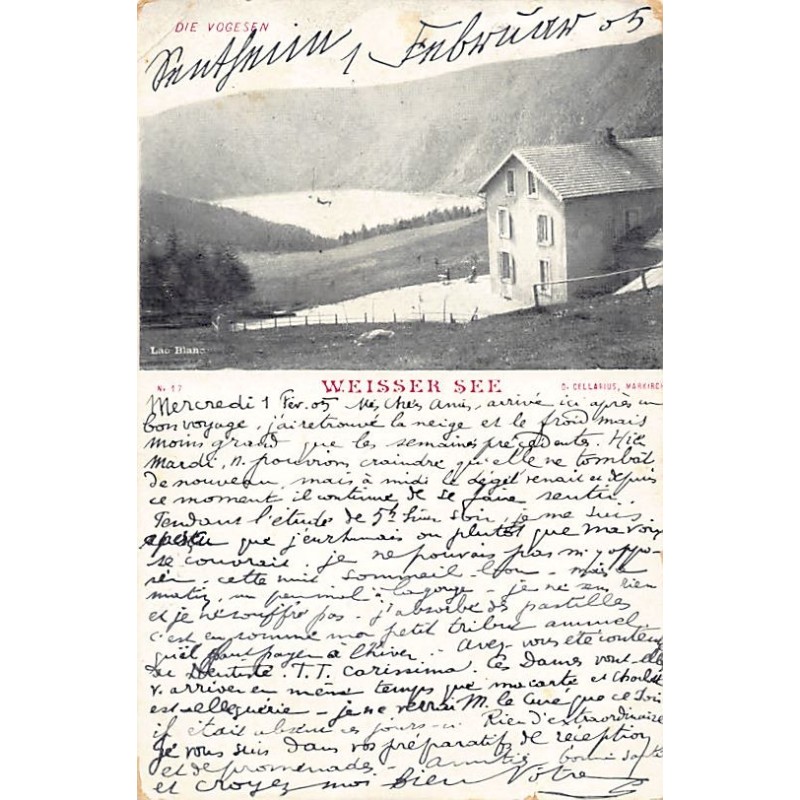 DIE VOGESEN
Sentheim 1 Februar 05
Lac Blanc
N. 17 WEISSER SEE C. CELLARIUS, MARKIRCH
Mercredi 1 Fév. 05 Mes Chers Amis, arrivé ici après un
bon voyage, j'ai retrouvé la neige et le froid mais
moins grand que les semaines précédentes. Hier
Mardi, n. pouvions craindre qu'elle ne tombât
de nouveau, mais à midi le dégel venait et depuis
ce moment il continue de se faire sentir.
Pendant l'étude de 5h hier soir, je me suis
que j'enrhumais ou plutôt que ma voix
se couvrait. je ne pouvais pas m'y oppo-
ser. cette nuit sommeil bon - mais ce
matin, un peu mal à la gorge - je ne en rien
et je ne souffre pas - j'absorbe des pastilles
c'est en somme mon petit tribut annuel
qu'il faut payer à l'hiver. Avez-vous été contente
du Dentiste. T. T. carissima. les Dames vont-elles
v. arriver en même temps que ma carte et
est-elle guérie - je ne verrai M. le Curé que ce soir
il était absent ces jours-ci Rien d'extraordinaire
Je vous suis dans vos préparatifs de réception
et de promenades - Amitiés bonne santé
et croyez moi Bien Vôtre